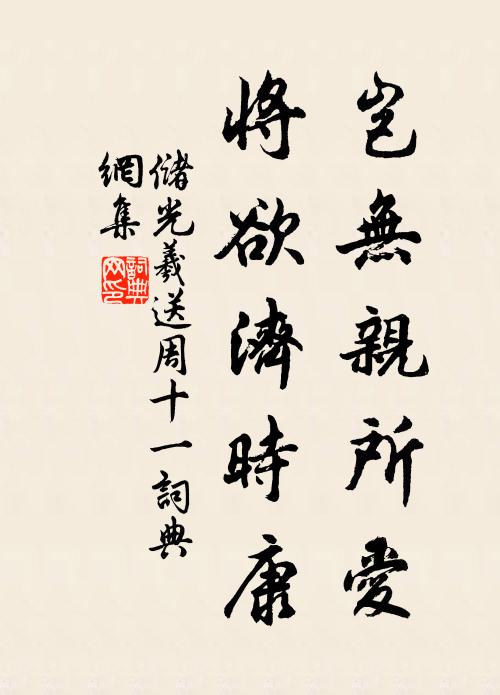 豈無親所愛
將欲濟時康
儲光羲送周十一詞典
網集
詞典
网印